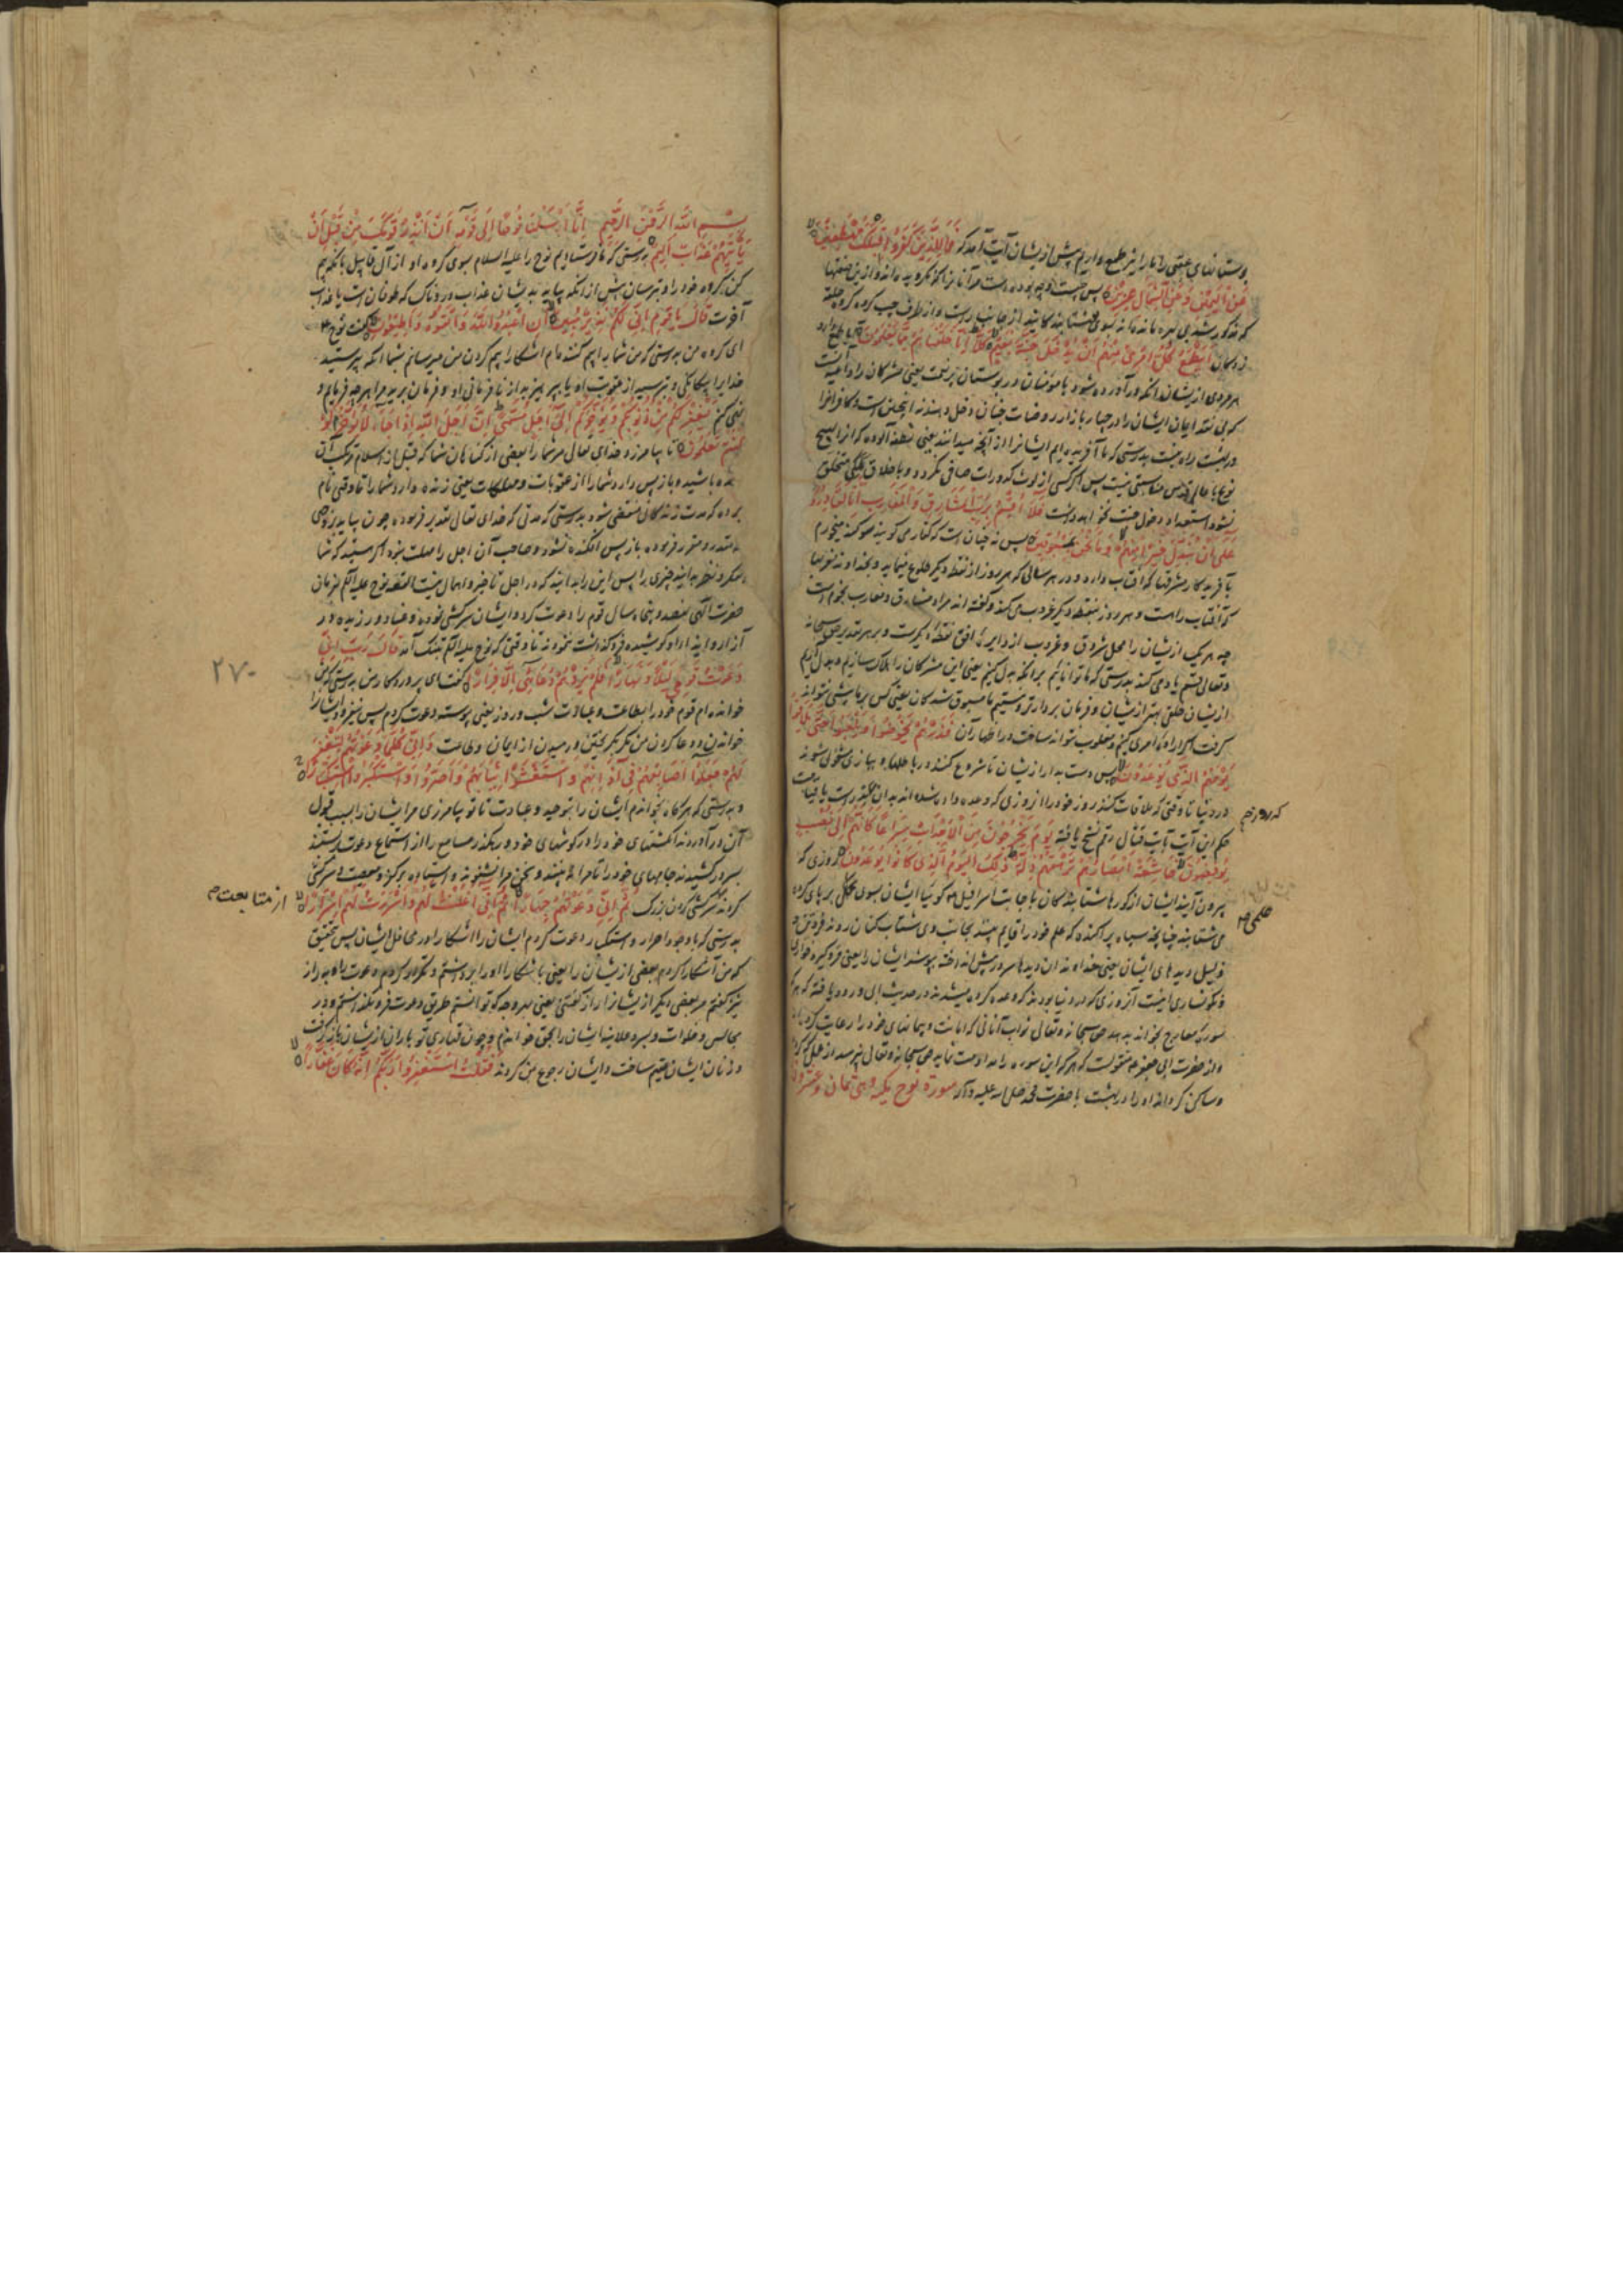 و بستانهای عقبی را ما را نیز طمع داریم پیش از یشان آیت آمد که فَمَالِ الَّذِينَ كَفَرُوا قِبَلَكَ مُهْطِعِينَ
عَنِ الْيَمِينِ وَعَنِ الشِّمَالِ عِزِينَ پس چیست و چه بوده است مر آنانرا که نکرویده اند
از جانب راست و از طرف چپ کروه کروه حلقه
زدکان أَيَطْمَعُ كُلُّ امْرِئٍ مِنْهُمْ أَنْ يُدْخَلَ جَنَّةَ نَعِيمٍ كَلَّا إِنَّا خَلَقْنَاهُمْ مِمَّا يَعْلَمُونَ آیا طمع دارد
هر مردی از یشان آنکه در آورده شود با مؤمنان در بوستان پر نعمت یعنی مشرکان را داعیه آنست
که بی نقد ایمان ایشان را در چهار بازار روضات جنان دخل دهند نه اینچنین است و کافرانرا
در بهشت راه نیست بدرستی که ما آفریده ایم ایشانرا از آنچه میدانند یعنی نطفه آلوده که انرا هیچ
نوع با عالم قدس مناسبتی نیست پس اکر کسی از لوث کدورات صافی نکردد و باخلاق ملکی متخلق
نشود استعداد دخول جنت نخواهد داشت فَلَا أُقْسِمُ بِرَبِّ الْمَشَارِقِ وَالْمَغَارِبِ إِنَّا لَقَادِرُونَ
عَلَى أَنْ نُبَدِّلَ خَيْرًا مِنْهُمْ وَمَا نَحْنُ بِمَسْبُوقِينَ پس نه چنان است که کفار می کویند سوکند میخورم
بآفریدکار مشرقها که آفتاب دارد و در هر سالی که هر روز از نقطه دیکر طلوع مینماید و بخداوند مغربها
که آفتاب راست و هر روز بنقطه دیکر غروب می کند و کفته اند مراد مشارق و مغارب نجوم است
چه هر یک از یشان را محل شروق و غروب از دایره افق نقطه دیکرست و بر هر تقدیر حق سبحانه
و تعالی قسم یاد می کند بدرستی که ما توانائیم برانکه بدل کنیم یعنی این مشرکان را هلاک سازیم و بدل آریم
از یشان خلقی بهتر از یشان و فرمان بردارتر و نیستیم ما مسبوق شدکان یعنی کس بر ما پیشی نتواند
کرفت اکر اراده امری کنیم و مغلوب نتواند ساخت در اظهار آن فَذَرْهُمْ يَخُوضُوا وَيَلْعَبُوا حَتَّى يُلَاقُوا
يَوْمَهُمُ الَّذِي يُوعَدُونَ پس دست بدار از یشان تا شروع کنند در باطلها و ببازی مشغول شوند
در دنیا تا وقتی که ملاقات کنند روز خود را از روزی که وعده داده شده اند بدان
حکم این آیت بآیت قتال رقم نسخ یافته يَوْمَ يَخْرُجُونَ مِنَ الْأَجْدَاثِ سِرَاعًا كَأَنَّهُمْ إِلَى نُصُبٍ
يُوفِضُونَ خَاشِعَةً أَبْصَارُهُمْ تَرْهَقُهُمْ ذِلَّةٌ ذَلِكَ الْيَوْمُ الَّذِي كَانُوا يُوعَدُونَ روزی که
بیرون آیند ایشان از کورها شتابندکان باجابت اسرافیل کوئیا ایشان بسوی علمی بر پای کرده
می شتابند چنانچه سپاه پراکنده که علم خود را قایم بینند بجانب وی شتاب کنان روند
ذلیل دیدهای ایشان یعنی خداوندان دیدها سر در پیش انداخته بپوشد ایشان را یعنی فرو گیرد خواری
و نکونساری اینست آنروزی که در دنیا بودند که وعده کرده میشدند در حدیث ابی ورود یافته که هر که
سوره معارج بخواند بدهد حق سبحانه و تعالی ثواب آنانی که امانت و پیمانهای خود را رعایت کرده
و از حضرت ابی جعفر منقولست که هر که این سوره را مداومت نماید حق سبحانه و تعالی نپرسد از عمل
و ساکن کرداند او را در بهشت با حضرت محمد صلی الله علیه و آله سورة نوح مکیه وهی ثمان وعشرون
علمی
بِسْمِ اللَّهِ الرَّحْمَنِ الرَّحِيمِ إِنَّا أَرْسَلْنَا نُوحًا إِلَى قَوْمِهِ أَنْ أَنْذِرْ قَوْمَكَ مِنْ قَبْلِ أَنْ
يَأْتِيَهُمْ عَذَابٌ أَلِيمٌ بدرستی که ما فرستادیم نوح را علیه السلام بسوی کروه او از آل قابیل بانکه بیم
کن کروه خود را و بترسان پیش از انکه بیاید بدیشان عذاب دردناک که طوفان است یا عذاب
آخرت قَالَ يَا قَوْمِ إِنِّي لَكُمْ نَذِيرٌ مُبِينٌ أَنِ اعْبُدُوا اللَّهَ وَاتَّقُوهُ وَأَطِيعُونِ گفت نوح
ای کروه من بدرستی که من شما را بیم کننده ام اشکارا بیم کردن من میرسانم بشما انکه بپرستید
خدایرا بیکانکی و بترسید از عقوبت او یا بپرهیزید از نافرمانی او و فرمان برید مرا بهر چه فرمایم و
نهی کنم يَغْفِرْ لَكُمْ مِنْ ذُنُوبِكُمْ وَيُؤَخِّرْكُمْ إِلَى أَجَلٍ مُسَمًّى إِنَّ أَجَلَ اللَّهِ إِذَا جَاءَ لَا يُؤَخَّرُ لَوْ
كُنْتُمْ تَعْلَمُونَ تا بیامرزد خدای تعالی مر شما را بعضی از کناهان شما که قبل از اسلام مرتکب آن
شده باشید و باز پس دارد شما را از عقوبات و مهلکات یعنی زنده دارد شما را تا وقتی نام
برده که مدت زندکانی منقضی شود بدرستی که مدتی که خدای تعالی تقدیر فرموده چون بیاید بروجهی
مقدر و مقرر فرموده باز پس افکنده نشود و صاحب آن اجل را مهلت نبود اکر هستید که شما
حضرت الهی نهصد و پنجاه سال قوم را دعوت کرد و ایشان سرکشی نموده و عناد ورزیده و در
آزار و ایذاء او کوشیده تا وقتی که نوح علیه السلام بتنک آمد قَالَ رَبِّ إِنِّي
دَعَوْتُ قَوْمِي لَيْلًا وَنَهَارًا فَلَمْ يَزِدْهُمْ دُعَائِي إِلَّا فِرَارًا گفت ای پروردکار من بدرستی که من
خوانده ام قوم خود را بطاعت و عبادت شب و روز یعنی پیوسته دعوت کردم پس نیفزود ایشانرا
خواندن و دعا کردن من مکر کریختن و رمیدن از ایمان و طاعت وَإِنِّي كُلَّمَا دَعَوْتُهُمْ لِتَغْفِرَ
لَهُمْ جَعَلُوا أَصَابِعَهُمْ فِي آذَانِهِمْ وَاسْتَغْشَوْا ثِيَابَهُمْ وَأَصَرُّوا وَاسْتَكْبَرُوا اسْتِكْبَارًا
و بدرستی که هرکاه بخواندم ایشان را بتوحید و عبادت تا تو بیامرزی مر ایشان را بسبب قبول
آن در آوردند انکشتهای خود را در کوشهای خود و رهکذر مسامع را از استماع دعوت ببستند
و بسر درکشیدند جامهای خود را تا مرا نه بینند و سخن مرا نشنوند و استادند بر کفر و معصیت و سرکشی
کردند سرکشی کردن بزرک ثُمَّ إِنِّي دَعَوْتُهُمْ جِهَارًا ثُمَّ إِنِّي أَعْلَنْتُ لَهُمْ وَأَسْرَرْتُ لَهُمْ إِسْرَارًا
از متابعت
بدرستی که با وجود اصرار و استکبار دعوت کردم ایشان را اشکارا در محافل ایشان پس بتحقیق
که من آشکارا کردم بعضی از یشان را یعنی باشکارا
نیز گفتم مر بعضی دیکر از یشانرا راز گفتنی یعنی بهر وجه که توانستم طریق دعوت فرو نکذاشتم و در
مجالس و خلوات و سر و علانیه ایشان را بحق خواندم و چون باران از یشان باز گرفت
و زنان ایشان عقیم ساخت و ایشان رجوع بمن کردند فَقُلْتُ اسْتَغْفِرُوا رَبَّكُمْ إِنَّهُ كَانَ غَفَّارًا
۲۷۰